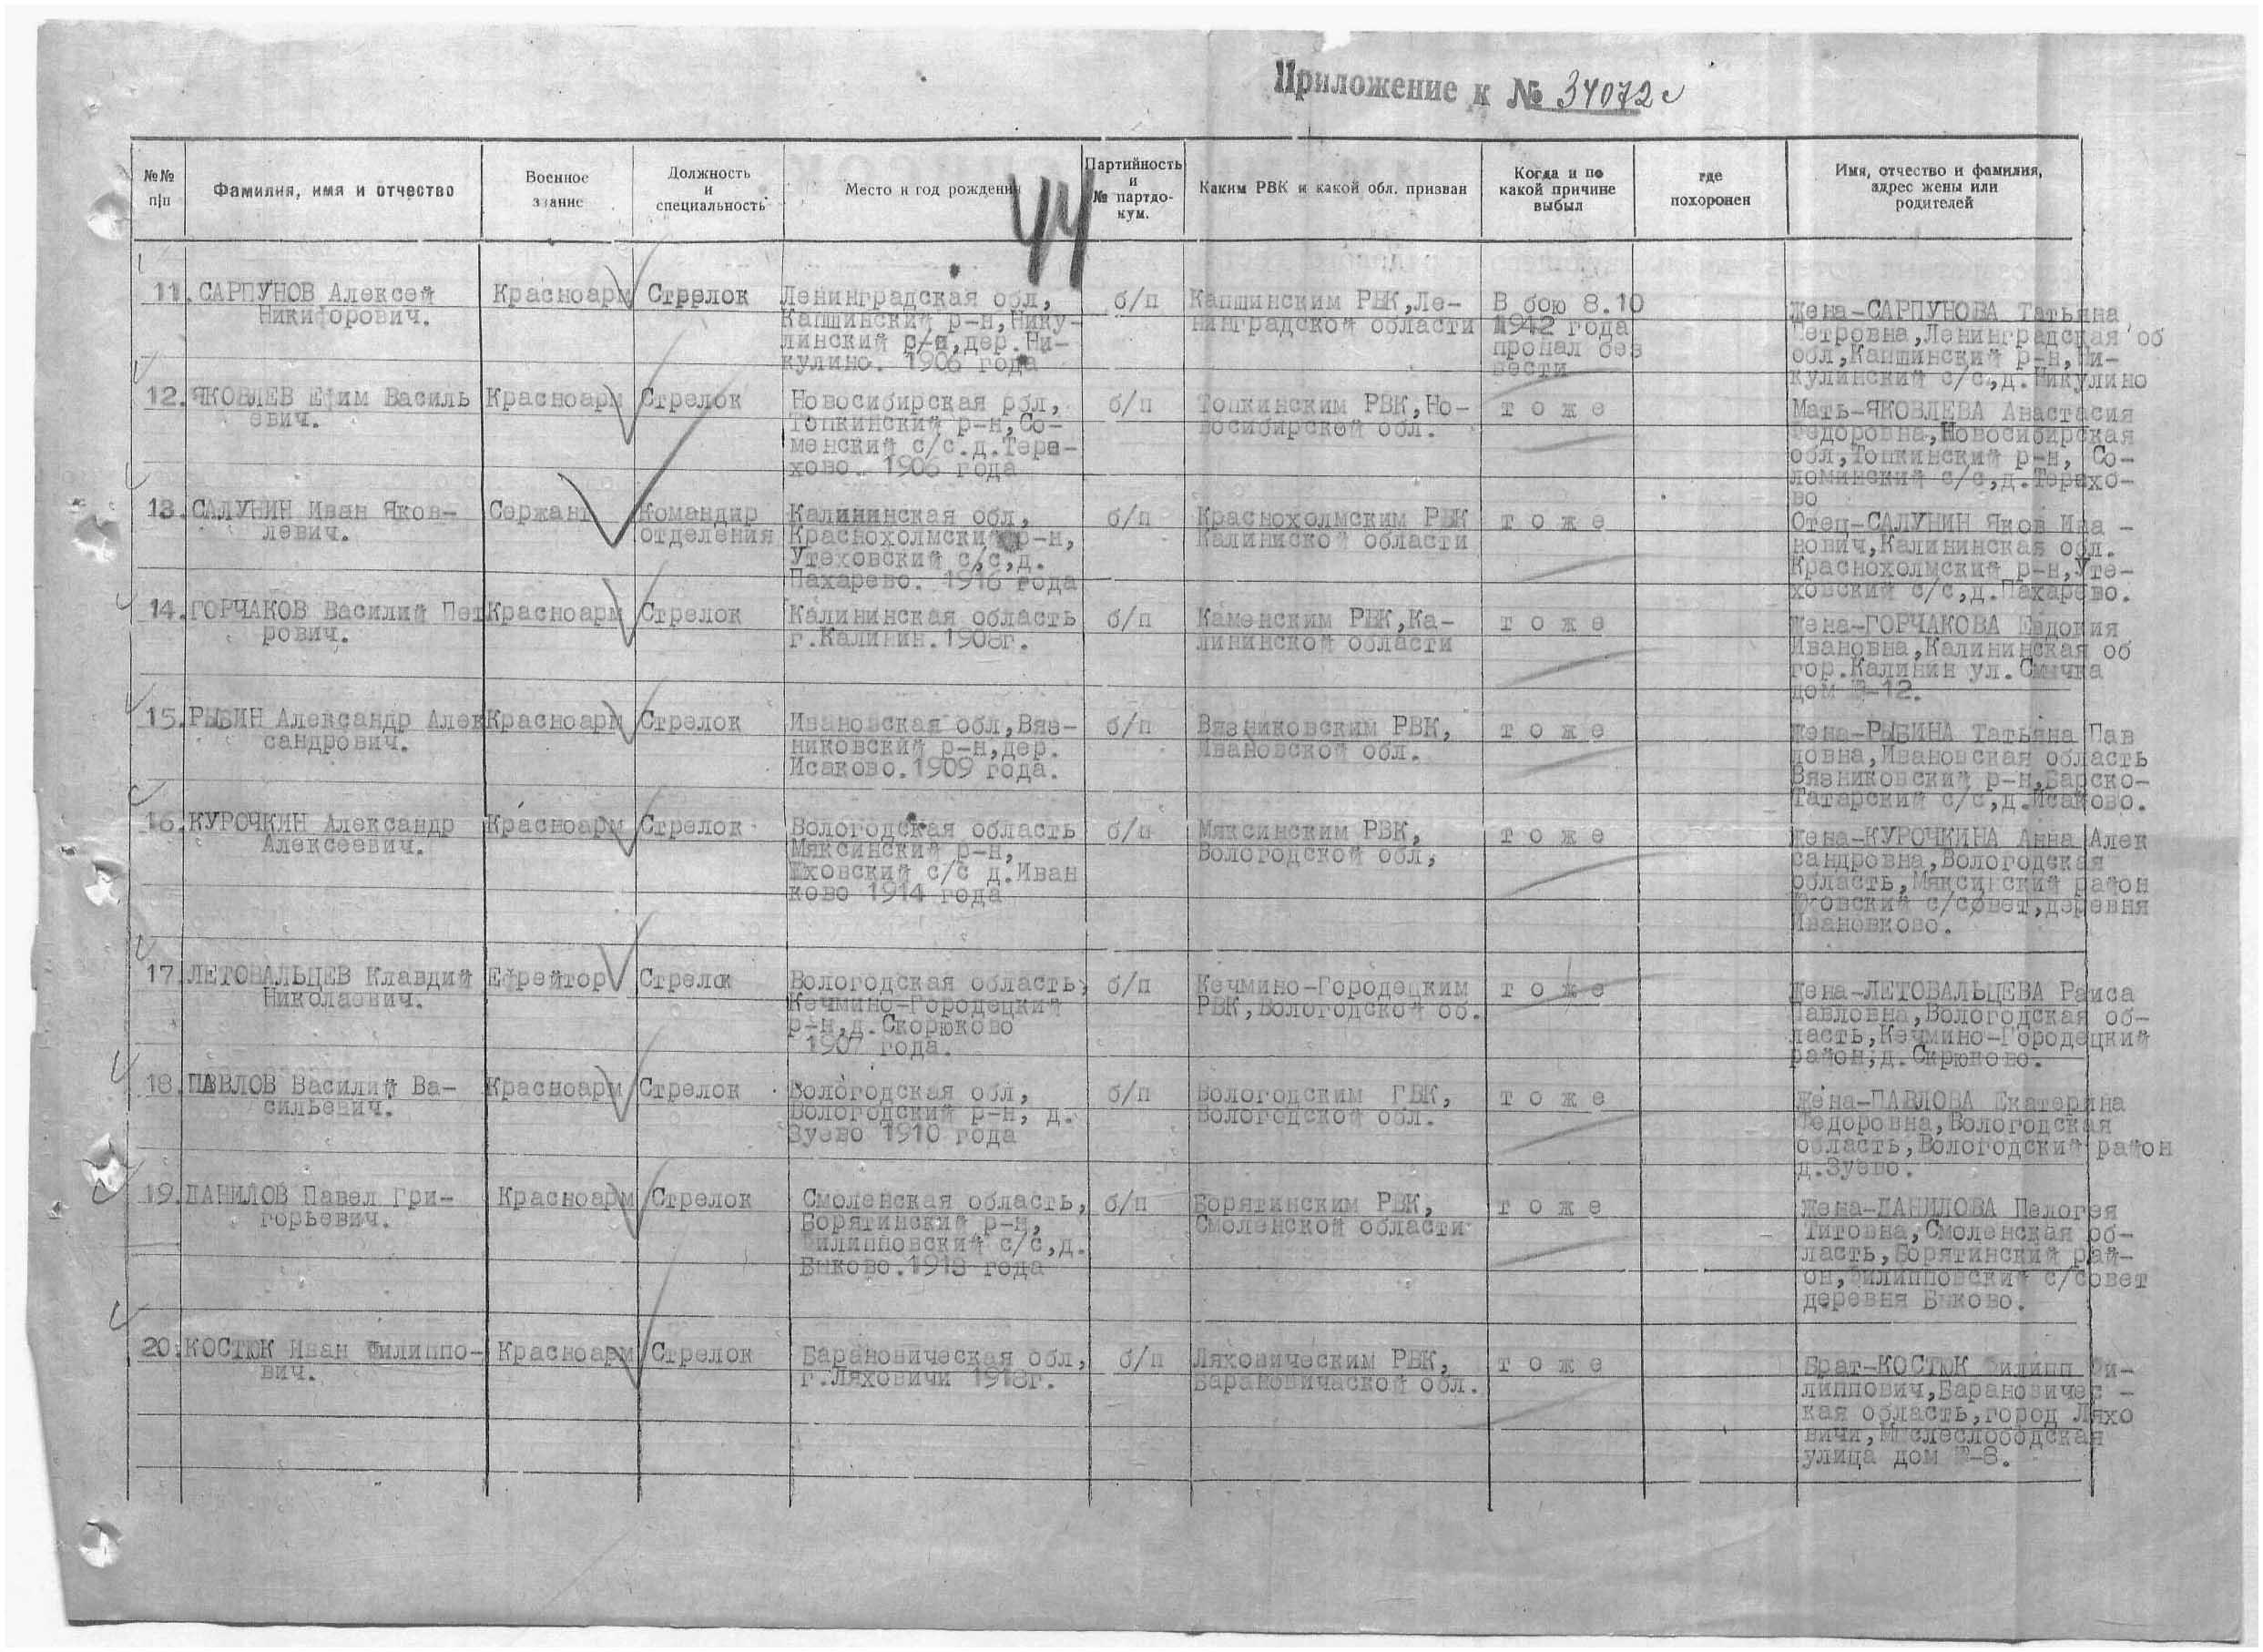 Приложение к № 34072с
44
№№ п|п
Фамилия, имя и отчество
Военное звание
Должность и специальность
Место и год рождения
Партийность и № партдокум.
Каким РВК и какой обл. призван
Когда и по какой причине выбыл
где похоронен
Имя, отчество и фамилия, адрес жены или родителей
11. САРПУНОВ Алексей
Никифорович.
Красноарм
Стрелок
Ленинградская обл,
Капшинский р-н, Нику-
линский с/с, дер. Ни-
кулино. 1906 года
б/п
Капшинским РВК, Ле-
нинградской области
В бою 8.10
1942 года
пропал без
вести
Жена-САРПУНОВА Татьяна
Петровна, Ленинградская об
обл, Капшинский р-н, Ни-
кулинский с/с., д. Никулино
12. ЯКОВЛЕВ Ефим Василь
евич.
Красноарм
Стрелок
Новосибирская обл,
Топкинский р-н, Со-
менский с/с. д. Тере-
хово. 1906 года
б/п
Топкинским РВК, Но-
восибирской обл.
т о ж е
Мать-ЯКОВЛЕВА Анастасия
Федоровна, Новосибирская
обл, Топкинский р-н, Со-
ломинский с/с, д. Терехо-
во
13. САЛУНИН Иван Яков-
левич.
Сержант
Командир
отделения
Калининская обл,
Краснохолмский р-н,
Утеховский с/с, д.
Пахарево. 1916 года
б/п
Краснохолмским РВК
Калиниской области
т о ж е
Отец-САЛУНИН Яков Ива -
нович, Калининская обл.
Краснохолмский р-н, Уте-
ховский с/с, д. Пахарево.
14. ГОРЧАКОВ Василий Пет
рович.
Красноарм
Стрелок
Калининская область
г. Калинин. 1908г.
б/п
Каменским РВК, Ка-
лининской области
т о ж е
Жена-ГОРЧАКОВА Евдокия
Ивановна, Калининская об
гор. Калинин ул. Смычка
дом №-12.
15. РЫБИН Александр Алек
сандрович.
Красноарм
Стрелок
Ивановская обл, Вяз-
никовский р-н, дер.
Исаково. 1909 года.
б/п
Вязниковским РВК,
Ивановской обл.
т о ж е
Жена-РЫБИНА Татьяна Пав
ловна, Ивановская область
Вязниковский р-н, Барско-
Татарский с/с, д. Исаково.
16. КУРОЧКИН Александр
Алексеевич.
Красноарм
Стрелок
Вологодская область
Мяксинский р-н,
Юховский с/с д. Иван
ково 1914 года
б/п
Мяксинским РВК,
Вологодской обл,
т о ж е
Жена-КУРОЧКИНА Анна Алек
сандровна, Вологодская
область, Мяксинский район
Юховский с/совет, деревня
Ивановково.
17. ЛЕТОВАЛЬЦЕВ Клавдий
Николаевич.
Ефрейтор
Стрелок
Вологодская область,
Кечмино-Городецкий
р-н, д. Скорюково
1907 года.
б/п
Кечмино-Городецким
РВК, Вологодской об.
т о ж е
Жена-ЛЕТОВАЛЬЦЕВА Раиса
Павловна, Вологодская об-
ласть, Кечмино-Городецкий
район, д. Скрюково.
18. ПАВЛОВ Василий Ва-
сильевич.
Красноарм
Стрелок
Вологодская обл,
Вологодский р-н, д.
Зуево 1910 года
б/п
Вологодским ГВК,
Вологодской обл.
т о ж е
Жена-ПАВЛОВА Екатерина
Федоровна, Вологодская
область, Вологодский район
д. Зуево.
19. ДАНИЛОВ Павел Гри-
горьевич.
Красноарм
Стрелок
Смоленская область,
Борятинский р-н,
Филипповский с/с, д.
Быково. 1918 года
б/п
Борятинским РВК,
Смоленской области
т о ж е
Жена-ДАНИЛОВА Пелогея
Титовна, Смоленская об-
ласть, Борятинский рай-
он, Филипповский с/совет
деревня Быково.
20. КОСТЮК Иван Филиппо-
вич.
Красноарм
Стрелок
Барановическая обл,
г. Ляховичи 1918г.
б/п
Ляховическим РВК,
Барановичаской обл.
т о ж е
Брат-КОСТЮК Филипп Фи-
липпович, Барановичес -
кая область, город Ляхо
вичи,
улица дом №-8.